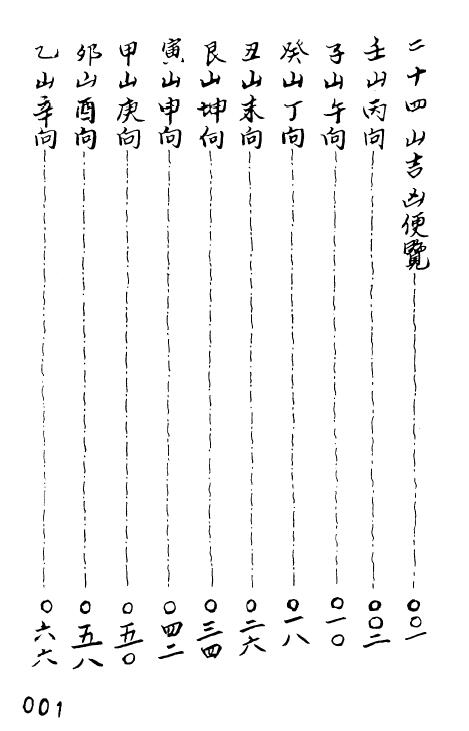 二十四山吉凶便覽 〇〇一
壬山丙向 〇〇二
子山午向 〇一〇
癸山丁向 〇一八
丑山未向 〇二六
艮山坤向 〇三四
寅山申向 〇四二
甲山庚向 〇五〇
卯山酉向 〇五八
乙山辛向 〇六六
001